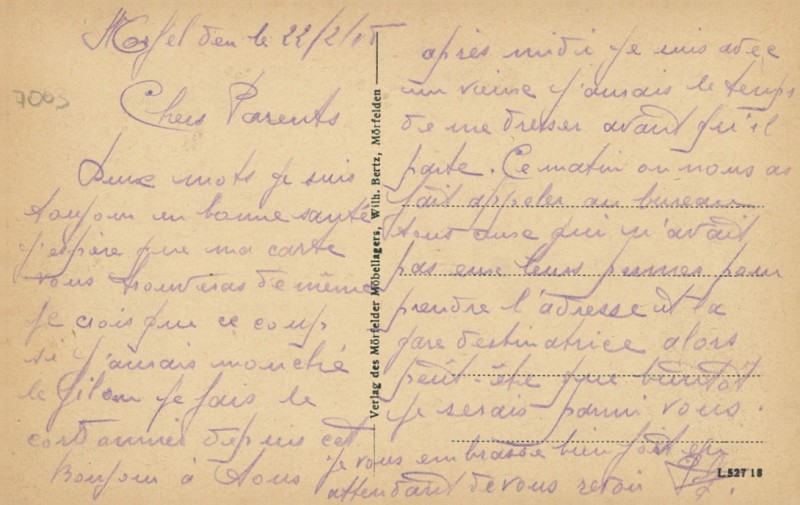 Morfelden le 22/2/45
7003
Chers Parents
Deux mots je suis
toujour en bonne santé
j'espère que ma carte
vous trouveras de même
je crois que ce coup
si j'aurais
le filon je fais le
depuis cet
Bonjour à tous
après midi je suis avec
un j'aurais le temps
de me dresser avant qu'il
parte. Ce matin on nous as
fait appeler au bureau
tout ceux qui n'avait
pas eux leurs pour
prendre l'adresse et la
gare destinatrice alors
peut-être que bientôt
je serais parmi vous.
je vous embrasse bien fort en
attendant de vous revoir
Verlag des Mörfelder Möbellagers, Wilh. Bertz, Mörfelden
L.527 18